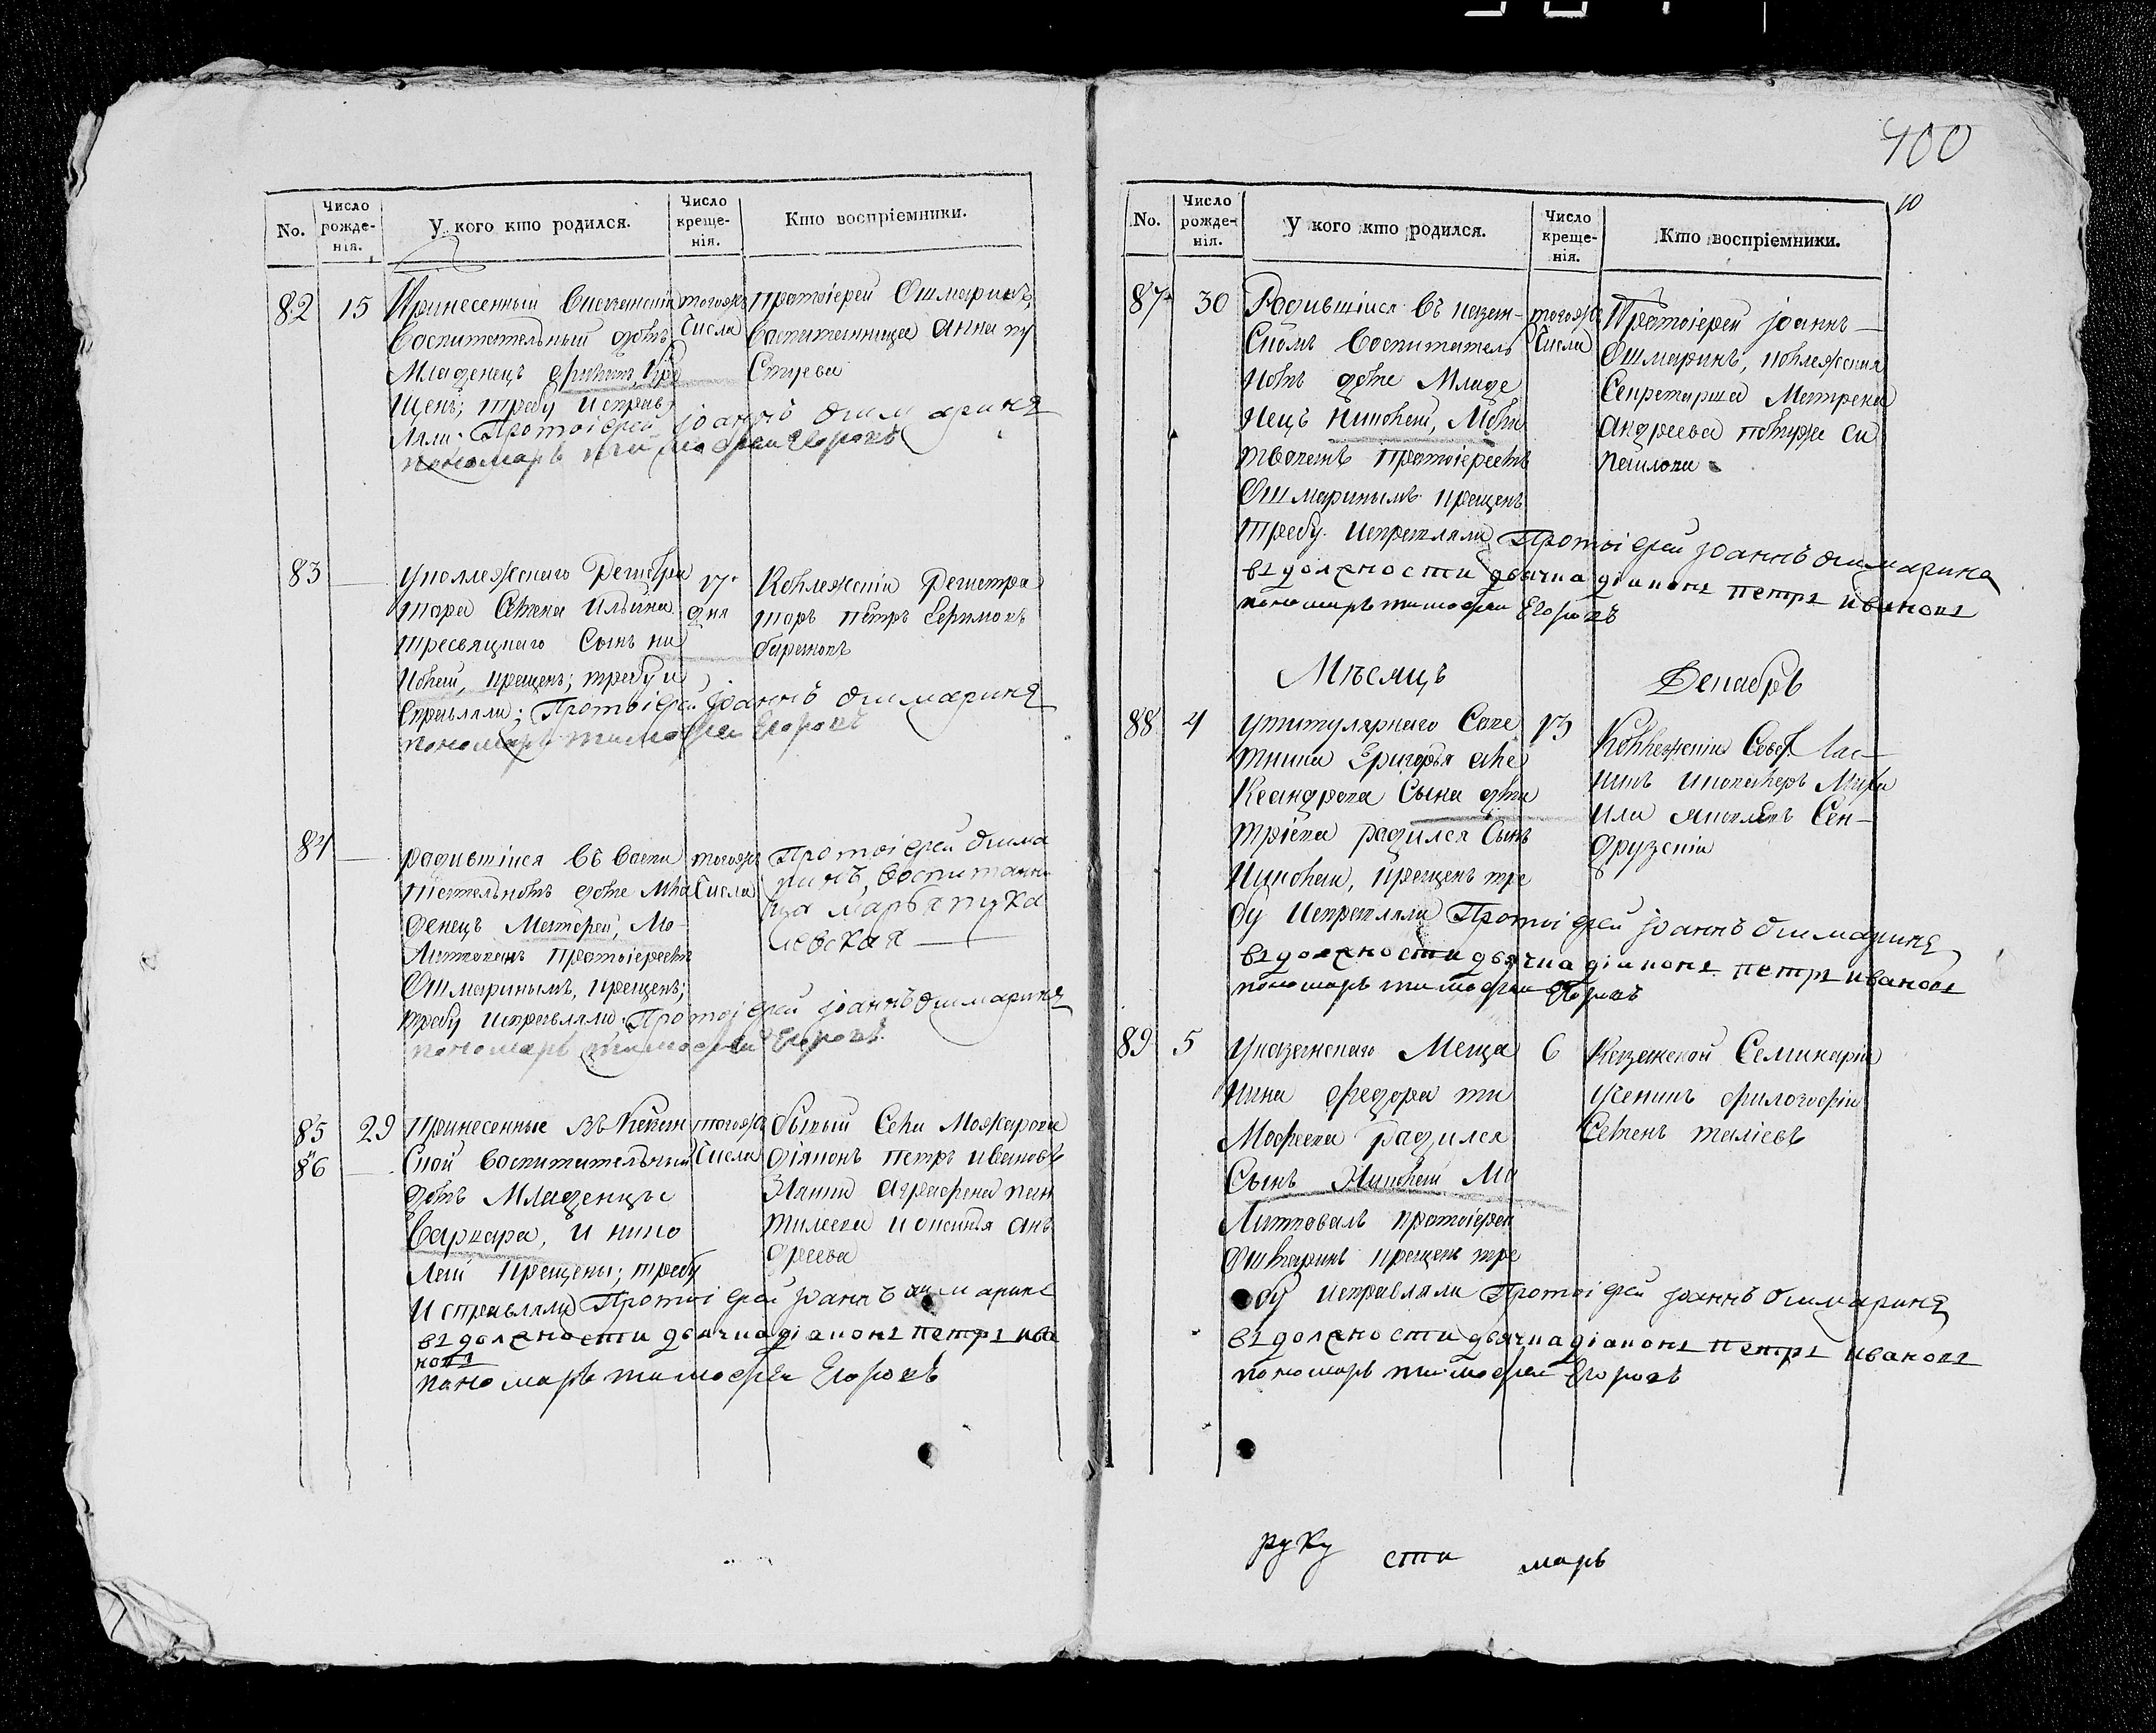 No.
Число рожде-нія.
У кого кто родился.
Число креще-нія.
Кто воспріемники.
82
15
Принесенный
Воспитательный домъ
Младенецъ
щенъ; требу исправ
ляли. Протоіерей Іоаннъ Ошмаринъ
пономарь тимофеи Егоровъ
тогожъ
Числа
протоіерей Ошмаринъ,
воспитанница Анна пу
стуева
83
Уколлежскаго Регистра
тора Семена Ильина
тресвяцкаго Сынъ ни
колай, крещенъ; требу и
справляли; Протоіерей Іоаннъ Ошмаринъ
пономарь тимофеи Егоровъ
17.
дня
Коллежскій Регистра
торъ Петръ Ефимовъ
84
родившійся въ воспи
тательномъ доме мла
денецъ Матфей, Мо-
литвованъ протоіереемъ
Ошмаринымъ, крещенъ;
требу исправляли. Протоіерей Іоаннъ Ошмаринъ
пономарь тимофеи Егоровъ
тогожъ
Числа
Протоіерей Ошма
ринъ, воспитанни
ца Марья пука
левская
85
86
29
принесенные въ Казан
ской воспитательный
домъ Младенцы
Варвара, и нико
лай крещены; требу
исправляли Протоіерей Іоаннъ Ошмаринъ
въ должности дьячка діаконъ петръ ива
новъ
пономарь тимофеи Егоровъ
тогожъ
Числа
Села Можарова
діяконъ петръ ивановъ
Аграфена пан
тилеева и Ан
дреева
400
10
No.
Число рожде-нія.
У кого кто родился.
Число креще-нія.
Кто воспріемники.
87
30
Родившійся въ казан-
скомъ воспитатель
номъ доме Младе
нецъ Николай, Моли
твованъ протоіереемъ
Ошмаринымъ крещенъ
требу исправляли Протоіерей Іоаннъ Ошмаринъ
въ должности дьячка діаконъ петръ ивановъ
пономарь тимофеи Егоровъ
тогожъ
Числа
Протоіерей Іоаннъ
Ошмаринъ, коллежская
Секретарша Матрена
Андреева
Мѣсяцъ Декабрь
88
4
Утитулярнаго Сове
тника Григорья Але
ксандрова Сына дми
тріева родился Сынъ
Николай, крещенъ тре
бу исправляли Протоіерей Іоаннъ Ошмаринъ
въ должности дьячка діаконъ петръ ивановъ
пономарь тимофеи Егоровъ
13
Коллежскій
89
5
Указанскаго Меща
нина Федора ти
мофеева родился
Сынъ Николай Мо
литвовалъ протоіерей
Ошмаринъ крещенъ тре
бу исправляли Протоіерей Іоаннъ Ошмаринъ
въ должности дьячка діаконъ петръ ивановъ
пономарь тимофеи Егоровъ
6
Казанской Семинаріи
Ученикъ философіи
Семенъ таліевъ
руку сти марь